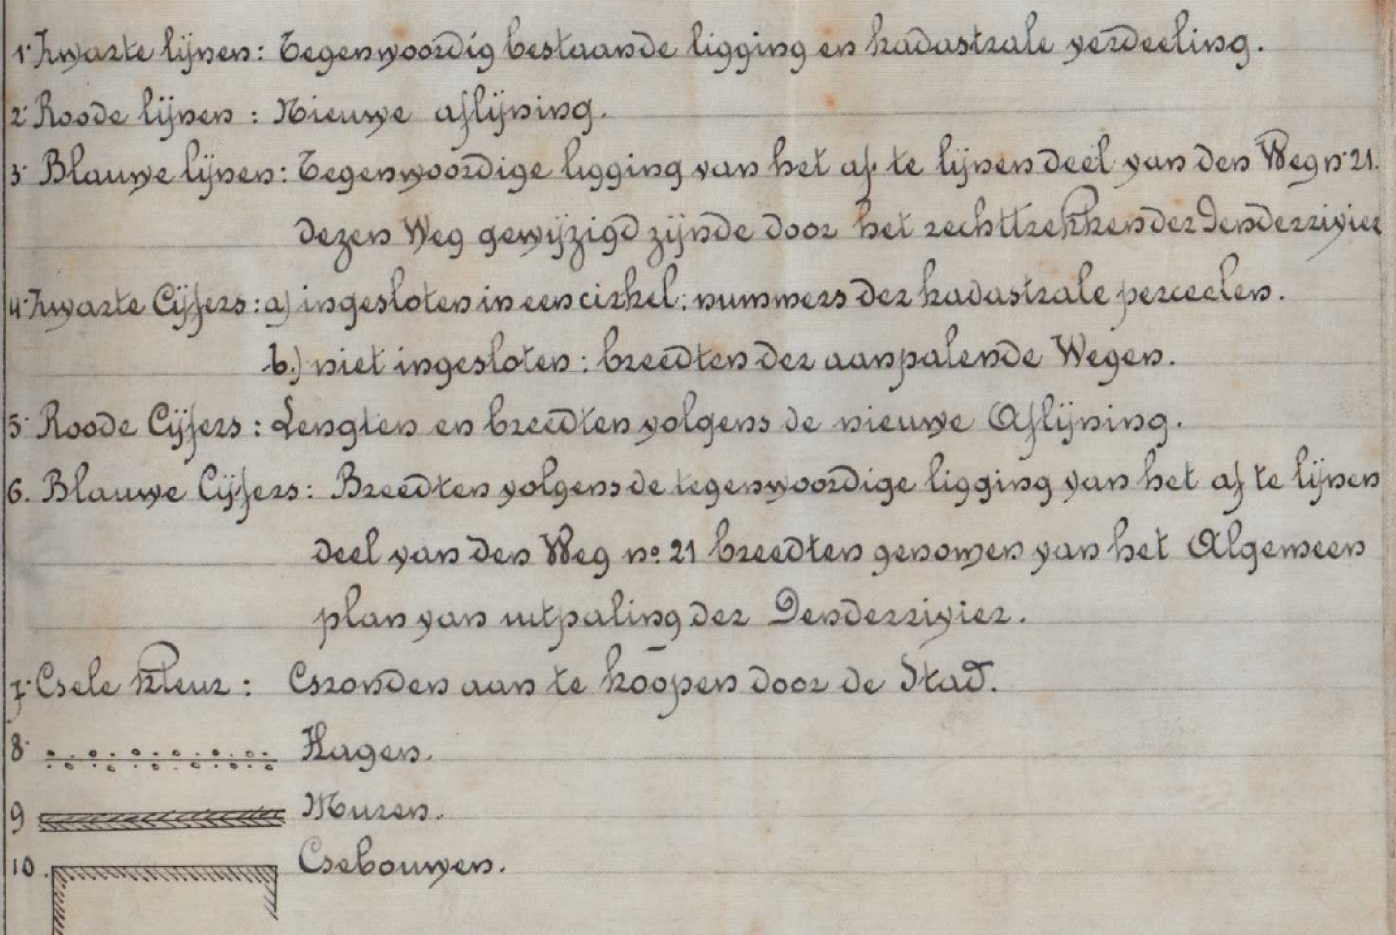 1. Zwarte lijnen: Tegenwoordig bestaande ligging en kadastrale verdeeling.
2. Roode lijnen: Nieuwe aflijning.
3. Blauwe lijnen: Tegenwoordige ligging van het af te lijnen deel van den Weg nr 21.
dezen Weg gewijzigd zijnde door het rechttrekken der Denderrivier
4. Zwarte Cijfers: a) ingesloten in een cirkel: nummers der kadastrale perceelen.
b.) niet ingesloten: breedten der aanpalende Wegen.
5. Roode Cijfers: Lengten en breedten volgens de nieuwe Aflijning.
6. Blauwe Cijfers: Breedten volgens de tegenwoordige ligging van het af te lijnen
deel van den Weg no. 21 breedten genomen van het Algemeen
plan van uitpaling der Denderrivier.
7. Gele Kleur: Gronden aan te koopen door de Stad.
8. Hagen.
9 Muren.
10. Gebouwen.